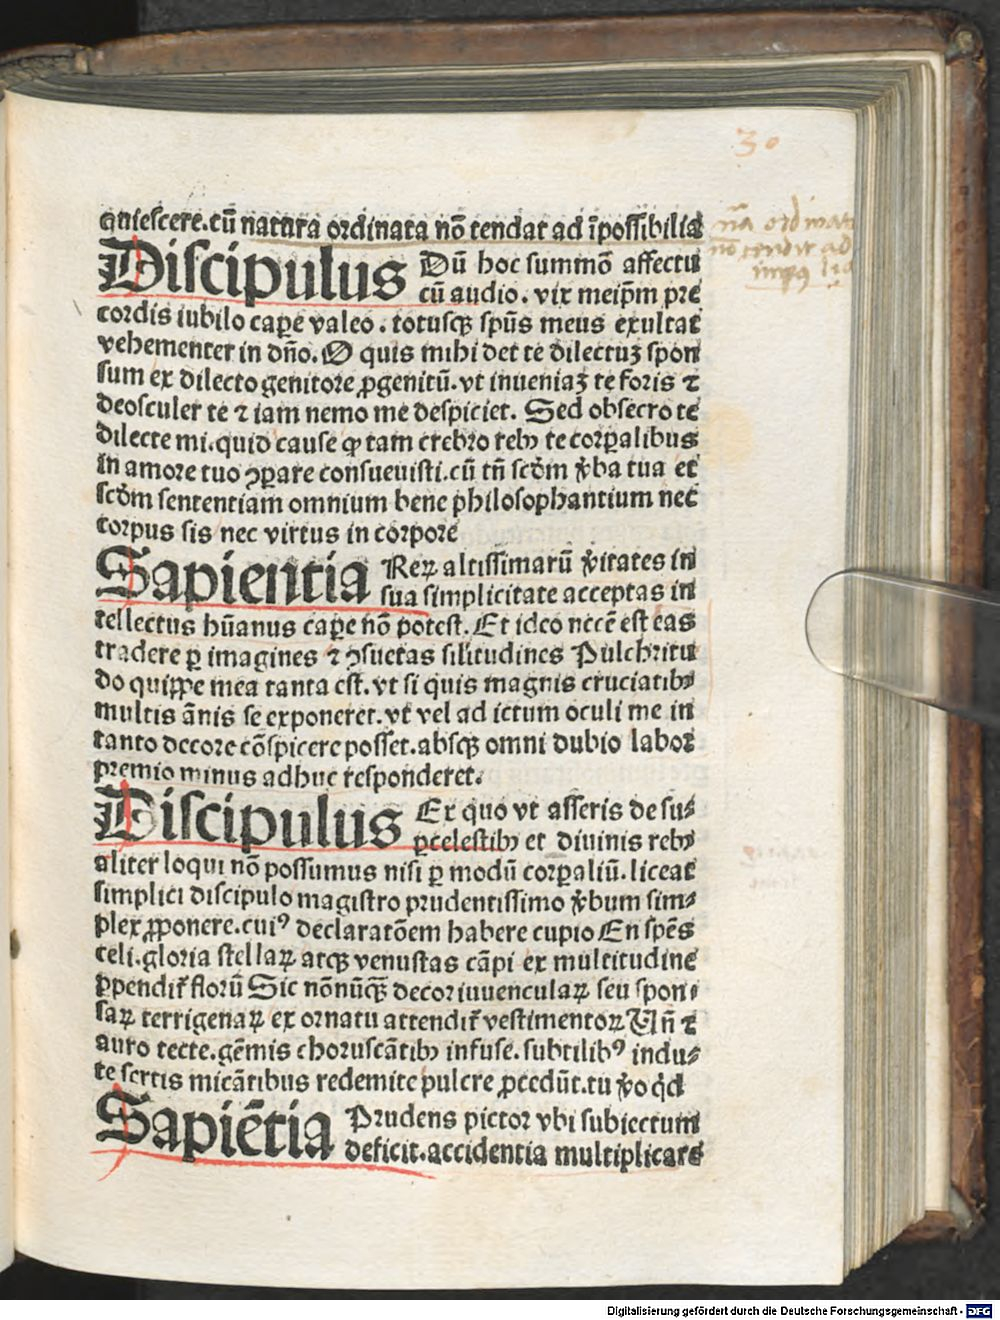 30
quiescere.cū natura ordinata nō tendat ad īpossibilia
nā ordinata
nō tendit ad
Discipulus Dū hoc summō affectu
cū audio. vix meip̄m pre
cordis iubilo cap̲e valeo. totusqꝫ sp̄us meus exultat
vehementer in dn̄o. O quis mihi det te dilectuꝫ spon
sum ex dilecto genitore ꝓgenitū. vt inueniaꝫ te foris ⁊
deosculer te ⁊ iam nemo me despiciet. Sed obsecro te
dilecte mi. quid cause ꝙ tam crebro rebꝰ te corꝑalibus
in amore tuo ꝯꝑare consueuisti. cū tn̄ scd̄m v̄ba tua et
scd̄m sententiam omnium bene philosophantium nec
corpus sis nec virtus in corpore
Sapientia Reꝝ altissimarū v̄itates in
sua simplicitate acceptas in
tellectus hūanus caꝑe nō potest. Et ideo necē est eas
tradere ꝑ imagines ⁊ ꝯsuetas sil̄itudines Pulchritu
do quippe mea tanta est. vt si quis magnis cruciatibꝫ
multis ānis se exponeret. vt vel ad ictum oculi me in
tanto decore cōspicere posset. absqꝫ omni dubio labor
premio minus adhuc responderet.
Discipulus Ex quo vt asseris de su⸗
ꝑcelestibꝫ et diuinis rebꝫ
aliter loqui nō possumus nisi ꝑ modū corꝑaliū. liceat
simplici discipulo magistro prudentissimo v̄bum sim⸗
plex ꝓponere. cuiꝰ declaratōem habere cupio En spēs
celi. gloria stellaꝝ atqꝫ venustas cāpi ex multitudine
ꝑpendit̄ florū Sic nōnūqꝫ decor iuuenculaꝝ seu spon⸗
saꝝ terrigenaꝝ ex ornatu attendit̄ vestimentoꝝ Vn̄ ⁊
auro tecte. gēmis choruscātibꝫ infuse. subtilibꝰ indu⸗
te sertis micātibus redemite pulcre ꝓcedūt. tu v̄o qd̄
Sapiētia Prudens pictor vbi subiectum
deficit. accidentia multiplicare
Digitalisierung gefördert durch die Deutsche Forschungsgemeinschaft - DFG